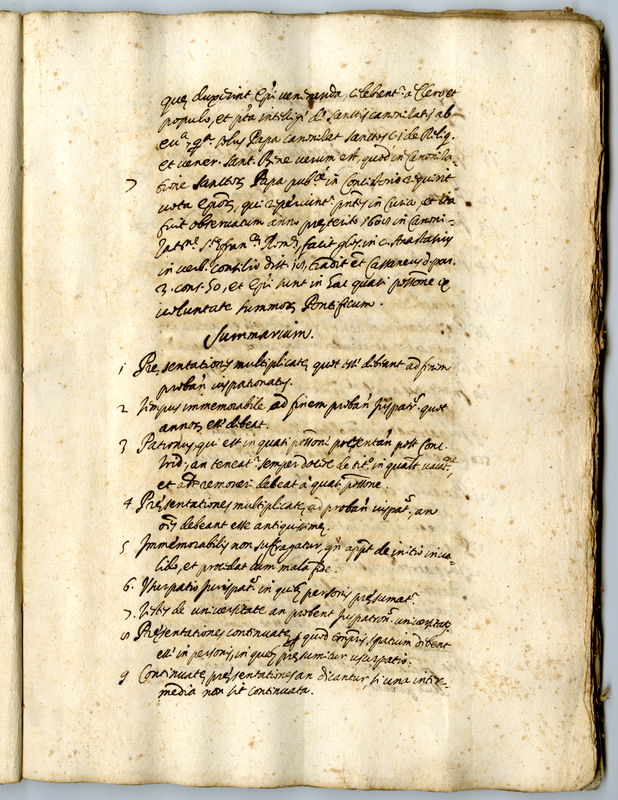 quę duxerint Ep̃i veneranda, celebent.r à Clero, et
populo, et p̃ta intelligi de sanctis canonizatis ab
solus Papa canonizat sanctos c. 1 de Reliq.
et vener. sant. Bene verum est quod in Canoniza-
7 tione sanctor. Papa pub.ce in Consistorio requirit
vota ep̃or, qui reperiunt.r p̃ntes in Curia et ita
fuit observatum anno pręterito 1608 in Canoni-
Rom. facit glos. in c. Anastasius
in verb. Consilio dist 19, tradit et Cassaneus
et Ep̃i sunt in
voluntate summor. Pontificum.
Summarium.
1 Pręsentationes multiplicatę quot esse debeant ad finem
proban iuspatronatus.
2 Tempus immemorabile ad finem proban Juspatr. quot
annor. esse debeat.
3 Patronus qui est in quasi possoni presentan post Conc.
Trid; an teneat.r semper docere de tit.o in qualt vacat.ne,
et an removeri debeat à quasi possone.
4 Pręsentationes multiplicatę ad proban iuspat.s, an
oẽs debeant esse antiquissimę.
5 Immemorabilis non suffragatur, qñ appt de initio inva-
lido, et procedat cum mala fide.
6. Usurpatio Jurispat.s in quib. personis pręsumat.r
7. Testes de universitate an probent Juspatron. universitat.
8 Pręsentationes continuatę quod temporis spatium debent
esse in personis, in queis pręsumitur usurpatio.
9 Continuatę pręsentationes an dicantur, si una inter-
media non sit continuata.